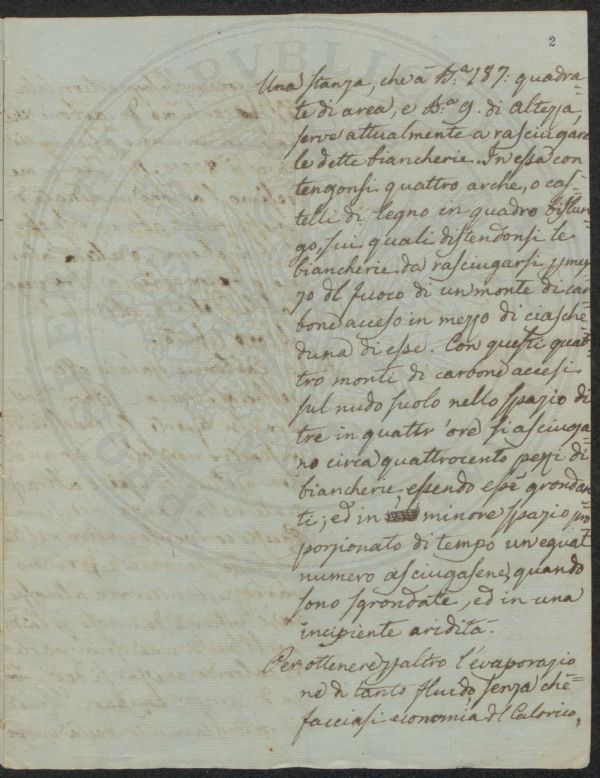 2
Una stanza, che à B.ª 187: quadra=
te di area, e B.ª 9. di altezza,
serve attualmente a rasciugare
le dette biancherie. In essa con
tengonsi quattro arche, o cas=
telli di legno in quadro bislun=
go, sui quali distendonsi le
biancherie da rasciugarsi p mez
zo dl fuoco di un monte di car
bone acceso in mezzo di ciasche
duna di esse. Con questi quat=
tro monti di carbone accesi
sul nudo suolo nello spazio di
tre in quattr'ore si asciuga=
no circa quattrocento pezzi di
biancherie, essendo esse grondan
ti; ed in minore spazio pro
porzionato di tempo un egual
numero asciugasene, quando
sono sgrondate, ed in una
incipiente aridità.
Per ottenere altro l'evaporazio
ne di tanto fluido, senza che
facciasi economia dl Calorico,